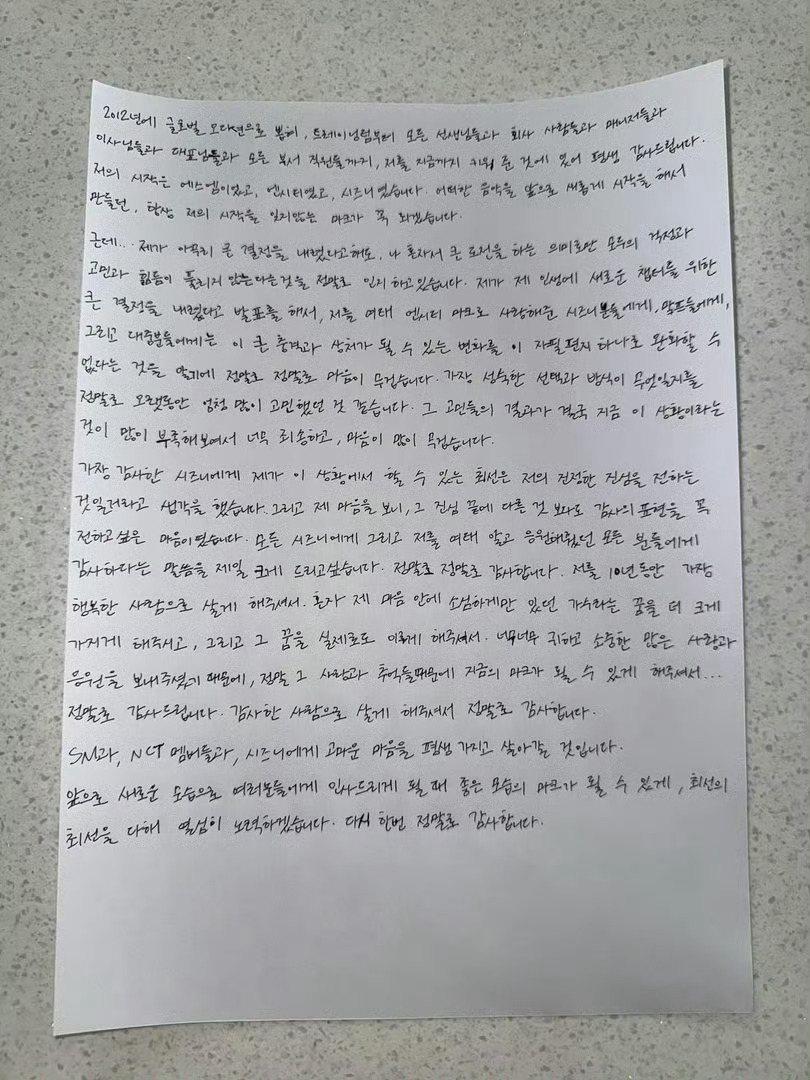 2012년에 글로벌 오디션으로 뽑혀, 트레이닝팀부터 모든 선생님들과 회사 사람들과 매니저들과
이사님들과 대표님들과 모든 부서 직원들까지, 저를 지금까지 키워 준 것에 있어 평생 감사드립니다.
저의 시작은 에스엠이였고, 엔시티였고, 시즈니였습니다. 어떠한 음악을 앞으로 새롭게 시작을 해서
만들던, 항상 저의 시작을 잊지않는 마크가 꼭 되겠습니다.
근데... 제가 아무리 큰 결정을 내렸다고해도, 나 혼자서 큰 도전을 하는 의미로만 모두의 걱정과
고민과 힘듬이 풀리지 않는다는것을 정말로 인지 하고있습니다. 제가 제 인생에 새로운 챕터를 위한
큰 결정을 내렸다고 발표를 해서, 저를 여태 엔시티 마크로 사랑해준 시즈니분들에게, 맠프들에게,
그리고 대중분들에게는 이 큰 충격과 상처가 될 수 있는 변화를 이 자필편지 하나로 완화할 수
없다는 것을 알기에 정말로 정말로 마음이 무겁습니다. 가장 성숙한 선택과 방식이 무엇일지를
정말로 오랫동안 엄청 많이 고민했던 것 같습니다. 그 고민들의 결과가 결국 지금 이 상황이라는
것이 많이 부족해보여서 너무 죄송하고, 마음이 많이 무겁습니다.
가장 감사한 시즈니에게 제가 이 상황에서 할 수 있는 최선은 저의 진정한 진심을 전하는
것일거라고 생각을 했습니다. 그리고 제 마음을 보니, 그 진심 끝에 다른 것 보다도 감사의 표현을 꼭
전하고싶은 마음이였습니다. 모든 시즈니에게 그리고 저를 여태 알고 응원해줬던 모든 분들에게
감사하다는 말씀을 제일 크게 드리고싶습니다. 정말로 정말로 감사합니다. 저를 10년동안 가장
행복한 사람으로 살게 해주셔서. 혼자 제 마음 안에 소심하게만 있던 가수라는 꿈을 더 크게
가지게 해주시고, 그리고 그 꿈을 실제로도 이루게 해주셔서. 너무너무 귀하고 소중한 많은 사랑과
응원을 보내주셨기 때문에, 정말 그 사랑과 추억들때문에 지금의 마크가 될 수 있게 해주셔서...
정말로 감사드립니다. 감사한 사람으로 살게 해주셔서 정말로 감사합니다.
SM과, NCT 멤버들과, 시즈니에게 고마운 마음을 평생 가지고 살아갈 것입니다.
앞으로 새로운 모습으로 여러분들에게 인사드리게 될 때 좋은 모습의 마크가 될 수 있게, 최선의
최선을 다해 열심히 노력하겠습니다. 다시 한번 정말로 감사합니다.